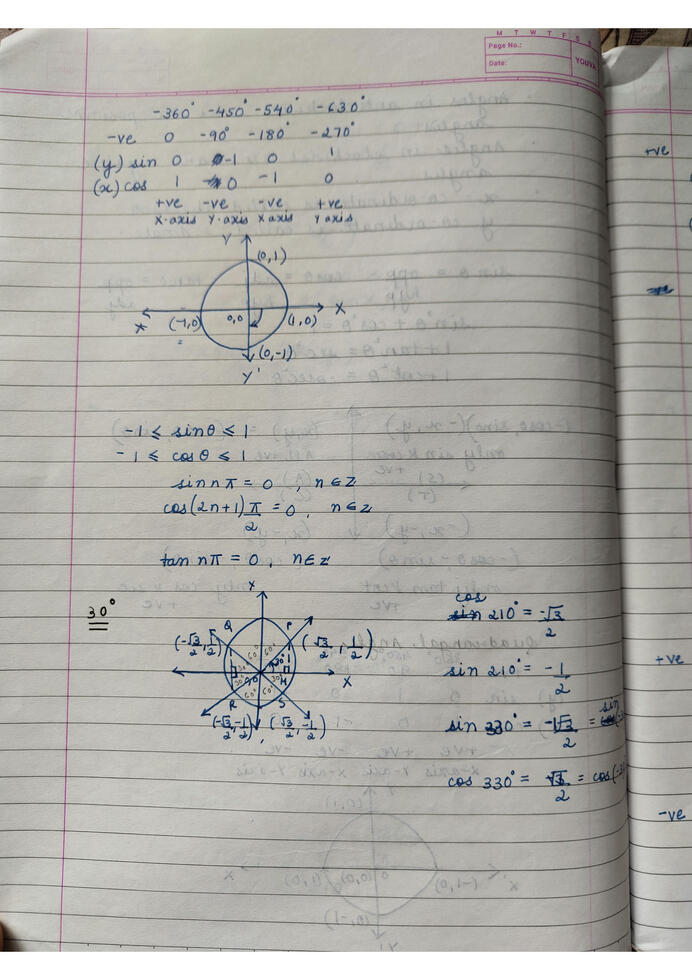 M T W T F S S
Page No.:
Date:
YOUVA
-360° -450° -540° -630°
-ve 0 -90° -180° -270°
(y) sin 0 -1 0 1
(x) cos 1 0 -1 0
+ve -ve -ve +ve
X-axis Y-axis X axis Y axis
Y
(0,1)
X
X
(-1,0) 0,0 (1,0)
(0,-1)
Y'
-1 ≤ sinθ ≤ 1
-1 ≤ cosθ ≤ 1
sin nπ = 0 , n∈Z
cos(2n+1) π/2 = 0 , n∈Z
tan nπ = 0 , n∈Z
30°
Y
Q P
(-√3/2, 1/2) (√3/2, 1/2)
60° 60°
30° 30°
X
30° M
60° 60°
R S
(-√3/2, -1/2) , (√3/2, -1/2)
cos 210° = -√3/2
sin 210° = -1/2
sin 330° = -1√3/2 = sin
cos 330° = √3/2 = cos(-3
+ve
+ve
-ve